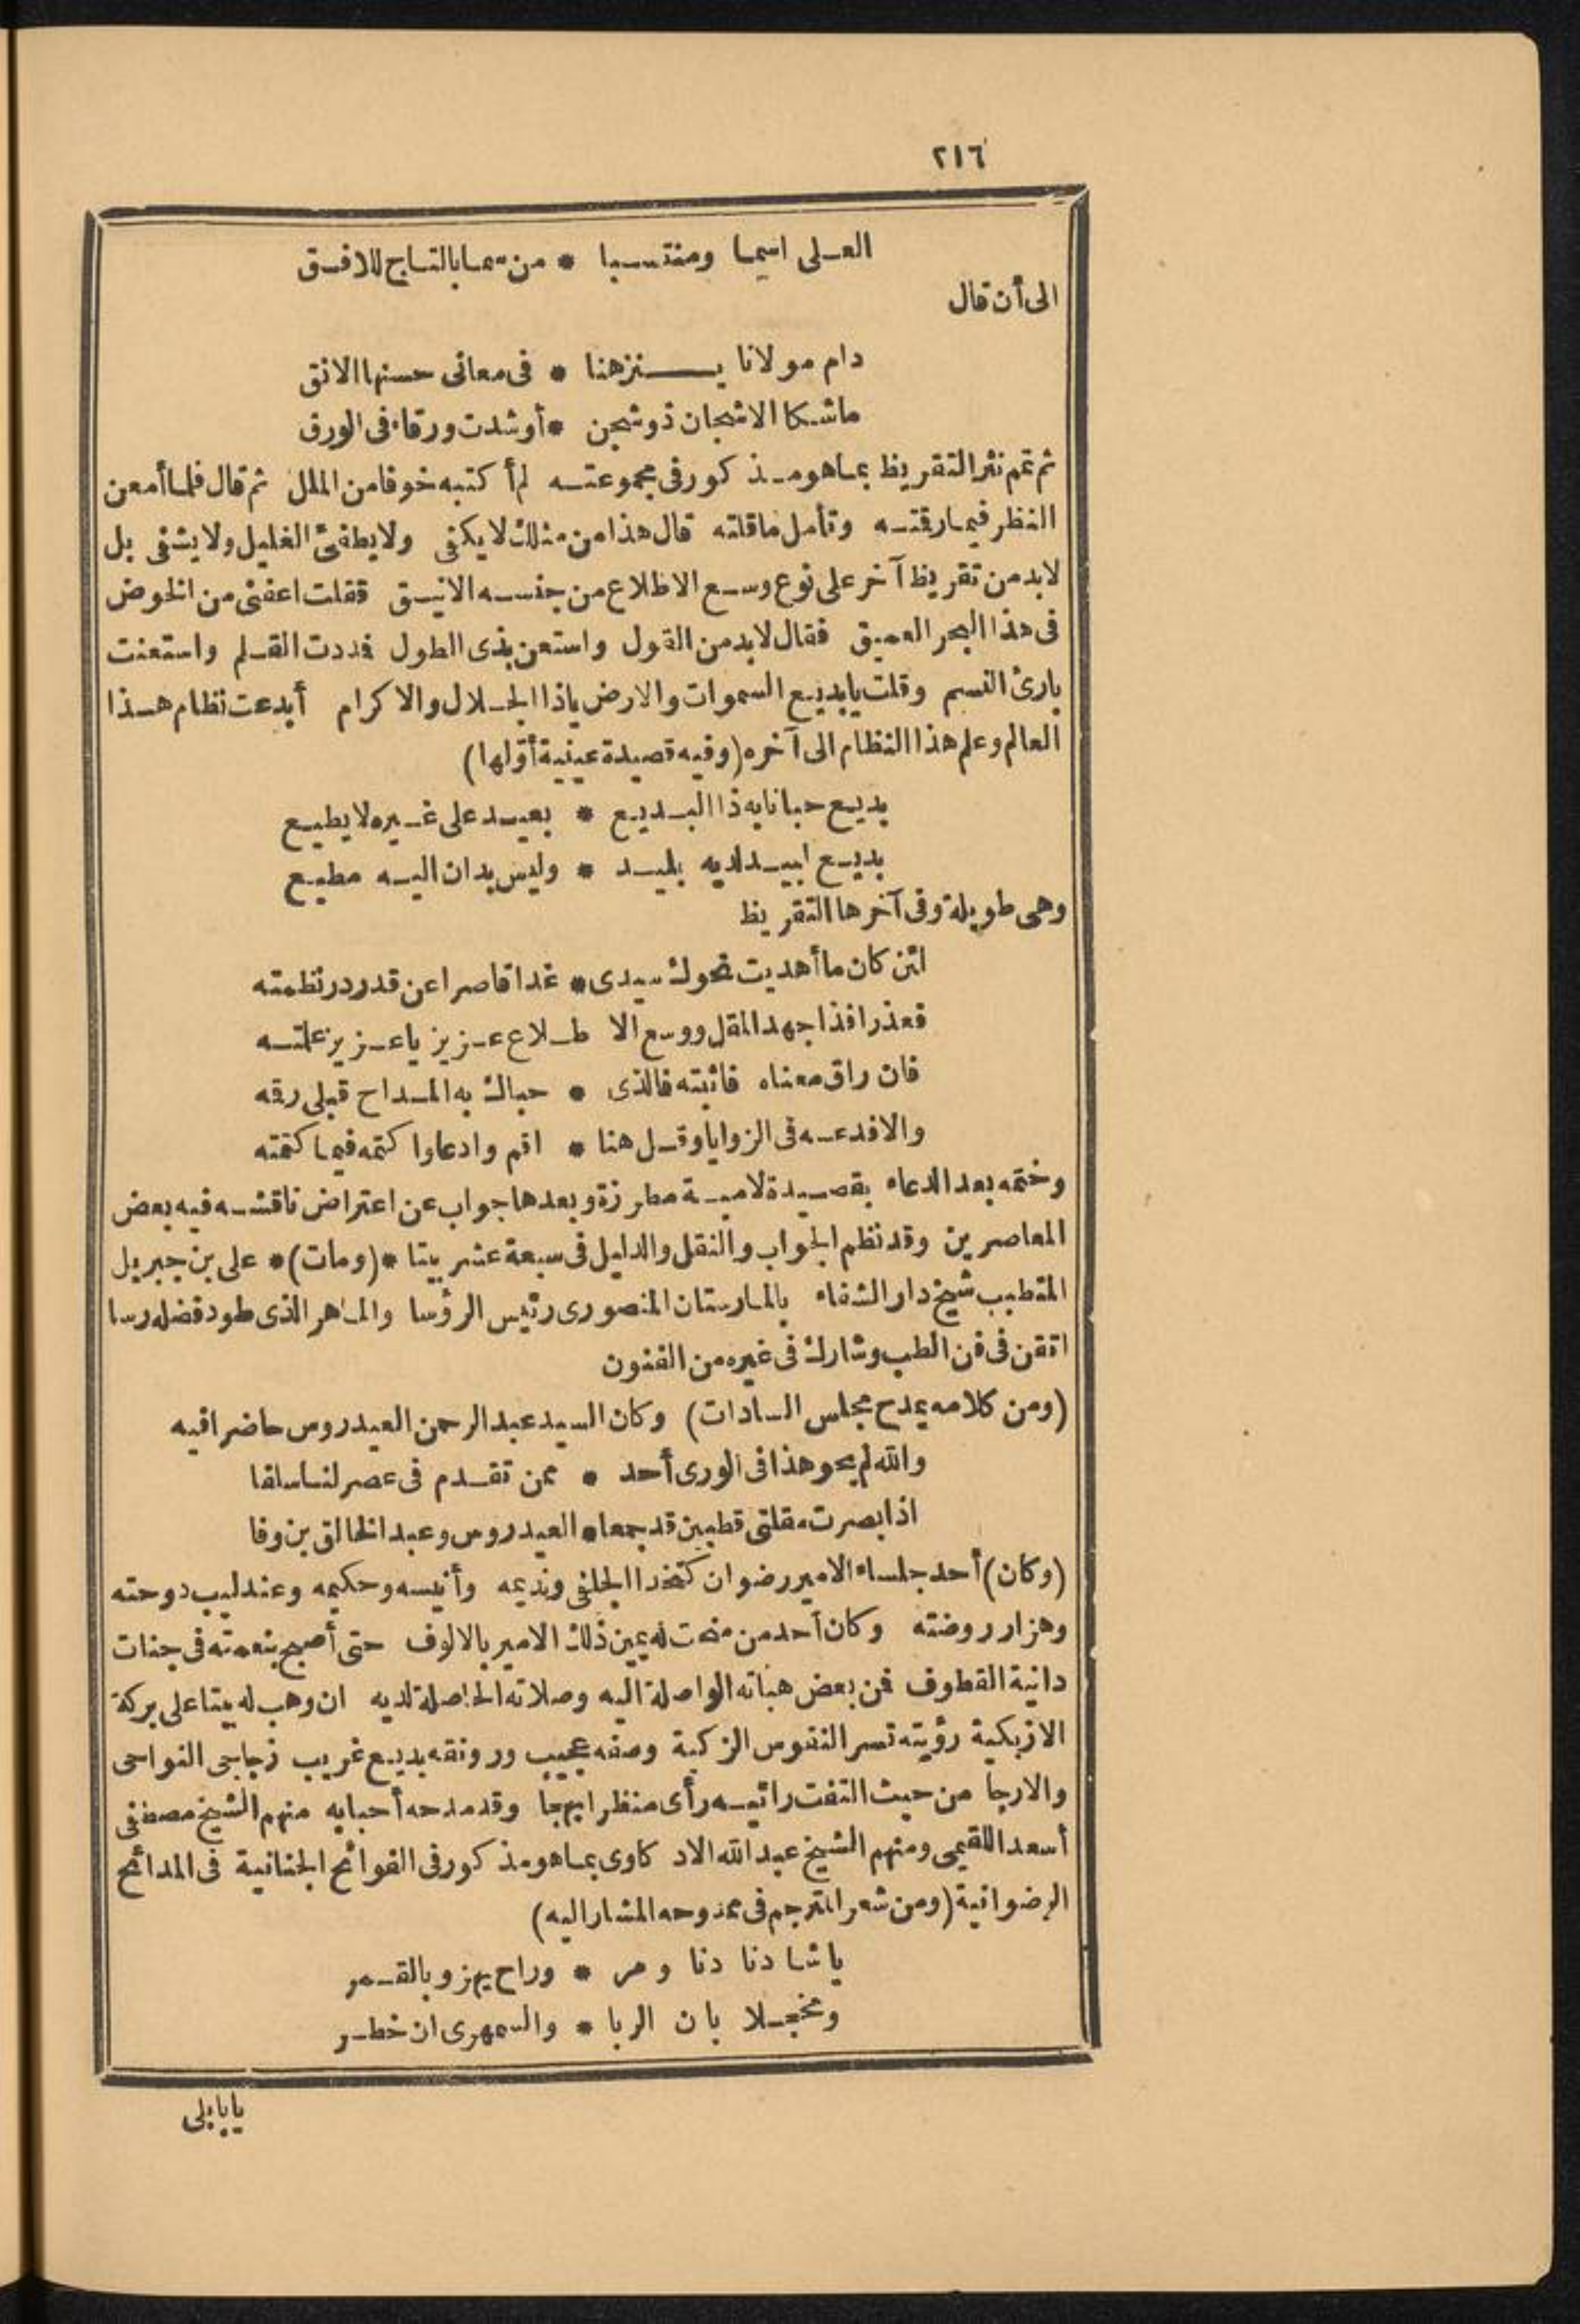 ٢١٦
العلى اسما ومنتسبا * من سما بالتاج للافق
الى أن قال
دام مولانا ينزهنا * فى معانى حسنها الانق
ماشكا الاشجان ذوشجن * أوشدت ورقاء فى الورق
ثم تمم نثر التقريظ بما هو مذكور فى مجموعته لم أكتبه خوفا من الملل ثم قال فلما أمعن
النظر فيما رقته وتأمل ما قلته قال هذا من مثلك لا يكفى ولا يطفئ الغليل ولا يشفى بل
لابد من تقريظ آخر على نوع وسع الاطلاع من جنسه الانيق فقلت اعفنى من الخوض
فى هذا البحر العميق فقال لابد من القول واستعن بذى الطول فددت القلم واستعنت
بارئ النسم وقلت يابديع السموات والارض ياذا الجلال والاكرام أبدعت نظام هذا
العالم وعلم هذا النظام الى آخره (وفيه قصيدة عينية أولها)
بديع حبانا به ذا البديع * بعيد على غيره لا يطيع
بديع لبيد لديه بليد * وليس بدان اليه مطيع
وهى طويلة وفى آخرها التقريظ
لئن كان ما أهديت نحوك سيدى * غدا قاصرا عن قدر در نظمته
فعذرا فذا جهد المقل ووسع الا طلاع عزيز ياعزيز علمته
فان راق معناه فاثبته فالذى * حباك به المداح قبلى رقه
والا فدعه فى الزوايا وقل هنا * اقم وادعا واكتمه فيما كتمته
وختمه بعد الدعاء بقصيدة لامية مطرزة وبعدها جواب عن اعتراض ناقشه فيه بعض
المعاصرين وقد نظم الجواب والنقل والدليل فى سبعة عشر بيتا *(ومات)* على بن جبريل
المتطبب شيخ دار الشفاء بالمارستان المنصورى رئيس الرؤسا والماهر الذى طود فضله رسا
اتقن فى فن الطب وشارك فى غيره من الفنون
(ومن كلامه يمدح مجلس السادات) وكان السيد عبد الرحمن العيدروس حاضرا فيه
والله لم يحو هذا فى الورى أحد * ممن تقدم فى عصر لنا سلفا
اذ ابصرت مقلتى قطبين قد جمعا * العيدروس وعبد الخالق بن وفا
(وكان) أحد جلساء الامير رضوان كتخدا الجلفى ونديمه وأنيسه وحكيمه وعندليب دوحته
وهزار روضته وكان أحد من منحت له يمين ذلك الامير بالالوف حتى أصبح بنعمته فى جنات
دانية القطوف فن بعض هباته الواصلة اليه وصلاته الحاصلة لديه ان وهب له بيتا على بركة
الازبكية رؤيته تسر النفوس الزكية وصفه عجيب ورونقه بديع غريب زجاجى النواحى
والارجا من حيث التفت رائيه رأى منظرا بهجا وقد مدحه أحبابه منهم الشيخ مصطفى
أسعد اللقيمى ومنهم الشيخ عبد الله الادكاوى بما هو مذكور فى الفوائح الجنانية فى المدائح
الرضوانية (ومن شعر المترجم فى ممدوحه المشار اليه)
ياشادنا دنا ومر * وراح يهزو بالقمر
ومخجلا بان الربا * والسمهرى ان خطر
يابابلى